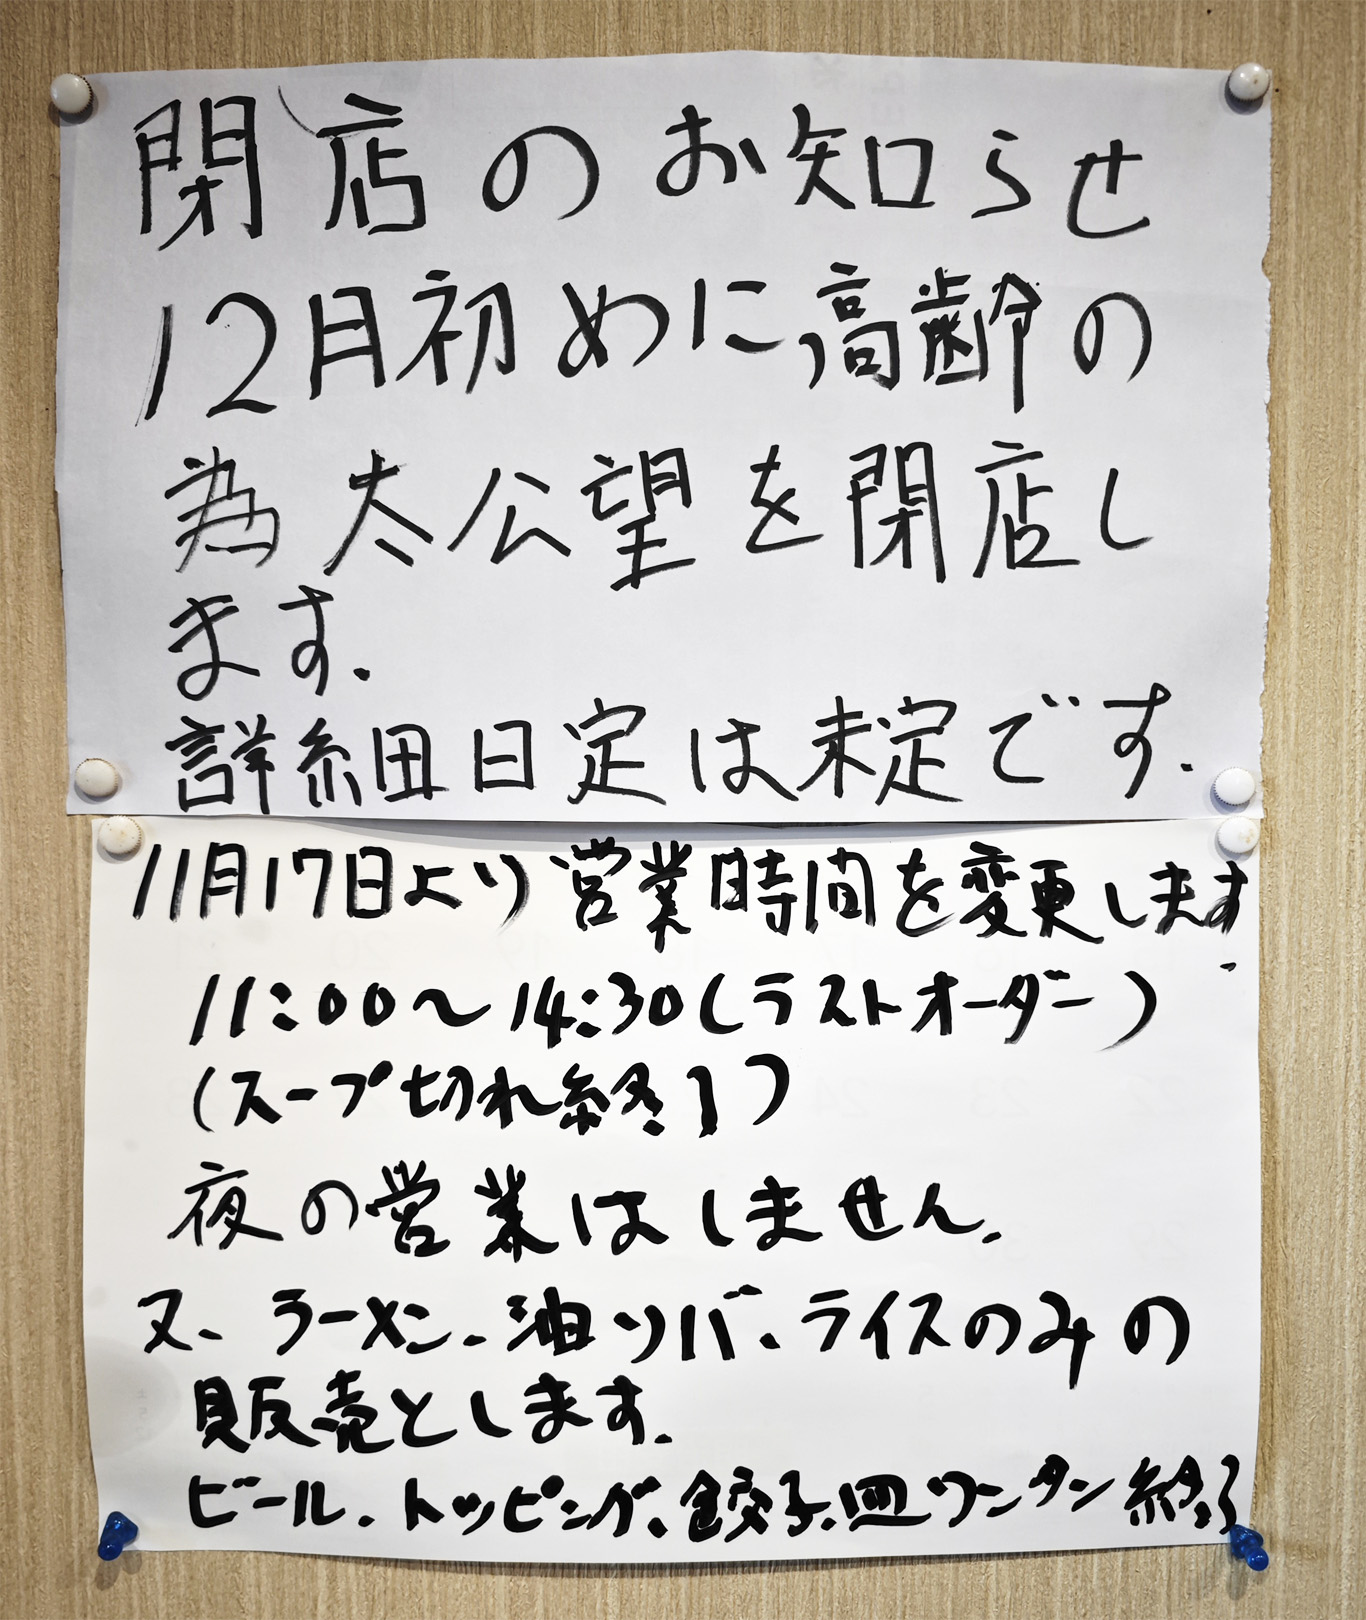 閉店のお知らせ
12月初めに,高齢の
為太公望を閉店し
ます.
詳細日定は未定です.
11月17日より営業時間を変更します.
11:00〜14:30(ラストオーダー)
(スープ切れ終了)
夜の営業はしません.
又、ラーメン、油ソバ、ライスのみの
販売とします.
ビール、トッピング、餃子、皿ワンタン終了